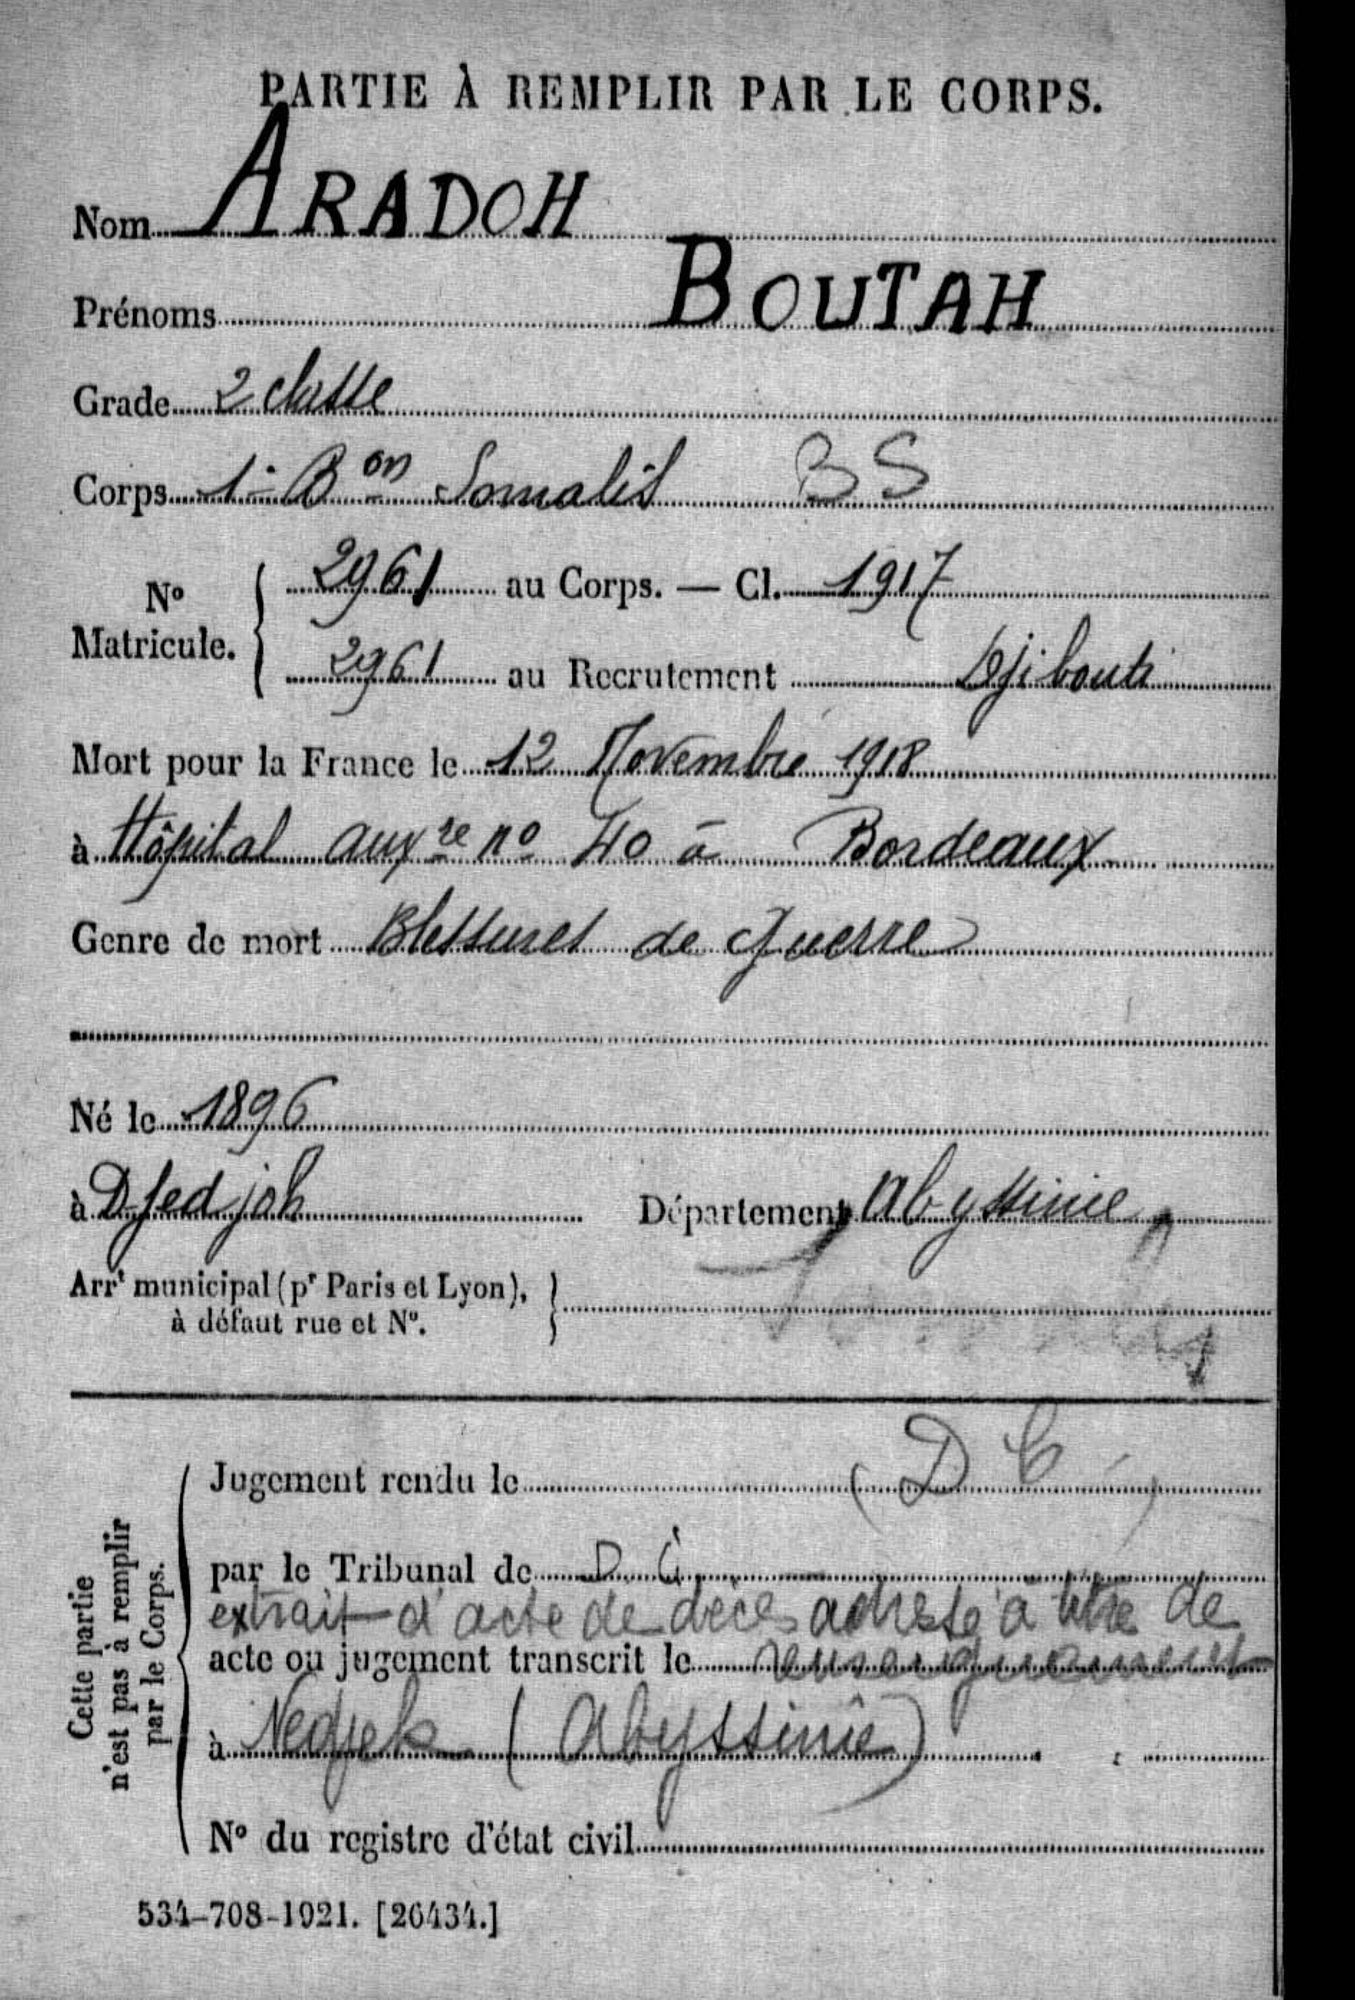 PARTIE À REMPLIR PAR LE CORPS.
Nom ARADOH
Prénoms BOUTAH
Grade 2 classe
Corps 1er Bon Somalis BS
No Matricule. 2961 au Corps. — Cl. 1917
2961 au Recrutement Djibouti
Mort pour la France le 12 Novembre 1918
à Hôpital auxre no 40 à Bordeaux
Genre de mort Blessures de Guerre
Né le 1896
à Djedjah Département Abyssinie
Arrt municipal (pr Paris et Lyon), à défaut rue et No.
Cette partie n'est pas à remplir par le Corps.
Jugement rendu le (D C)
par le Tribunal de D. C.
extrait d'acte de décès adressé à titre de
acte ou jugement transcrit le renseignement
à Nedjek (Abyssinie)
No du registre d'état civil
534-708-1921. [26434.]